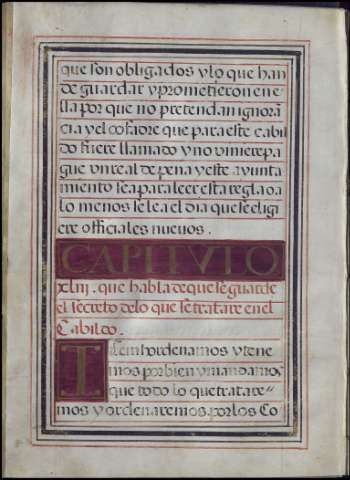 que son obligados y lo que han
de guardar y prometieron en e
lla por que no pretendan ignorã
cia y el cofadre que para este cabil
do fuere llamado y no viniere pa
gue un real de pena y este ayunta
miento sea para leer esta regla o a
lo menos se lea el dia que se elig
ere officiales nuevos.
CAPITVLO
xliij. que habla de que se guarde
el secreto de lo que se tratare en el
Cabildo.
Item hordenamos y tene
mos por bien y mandamos
que todo lo que tratare
mos y ordenaremos por los Co